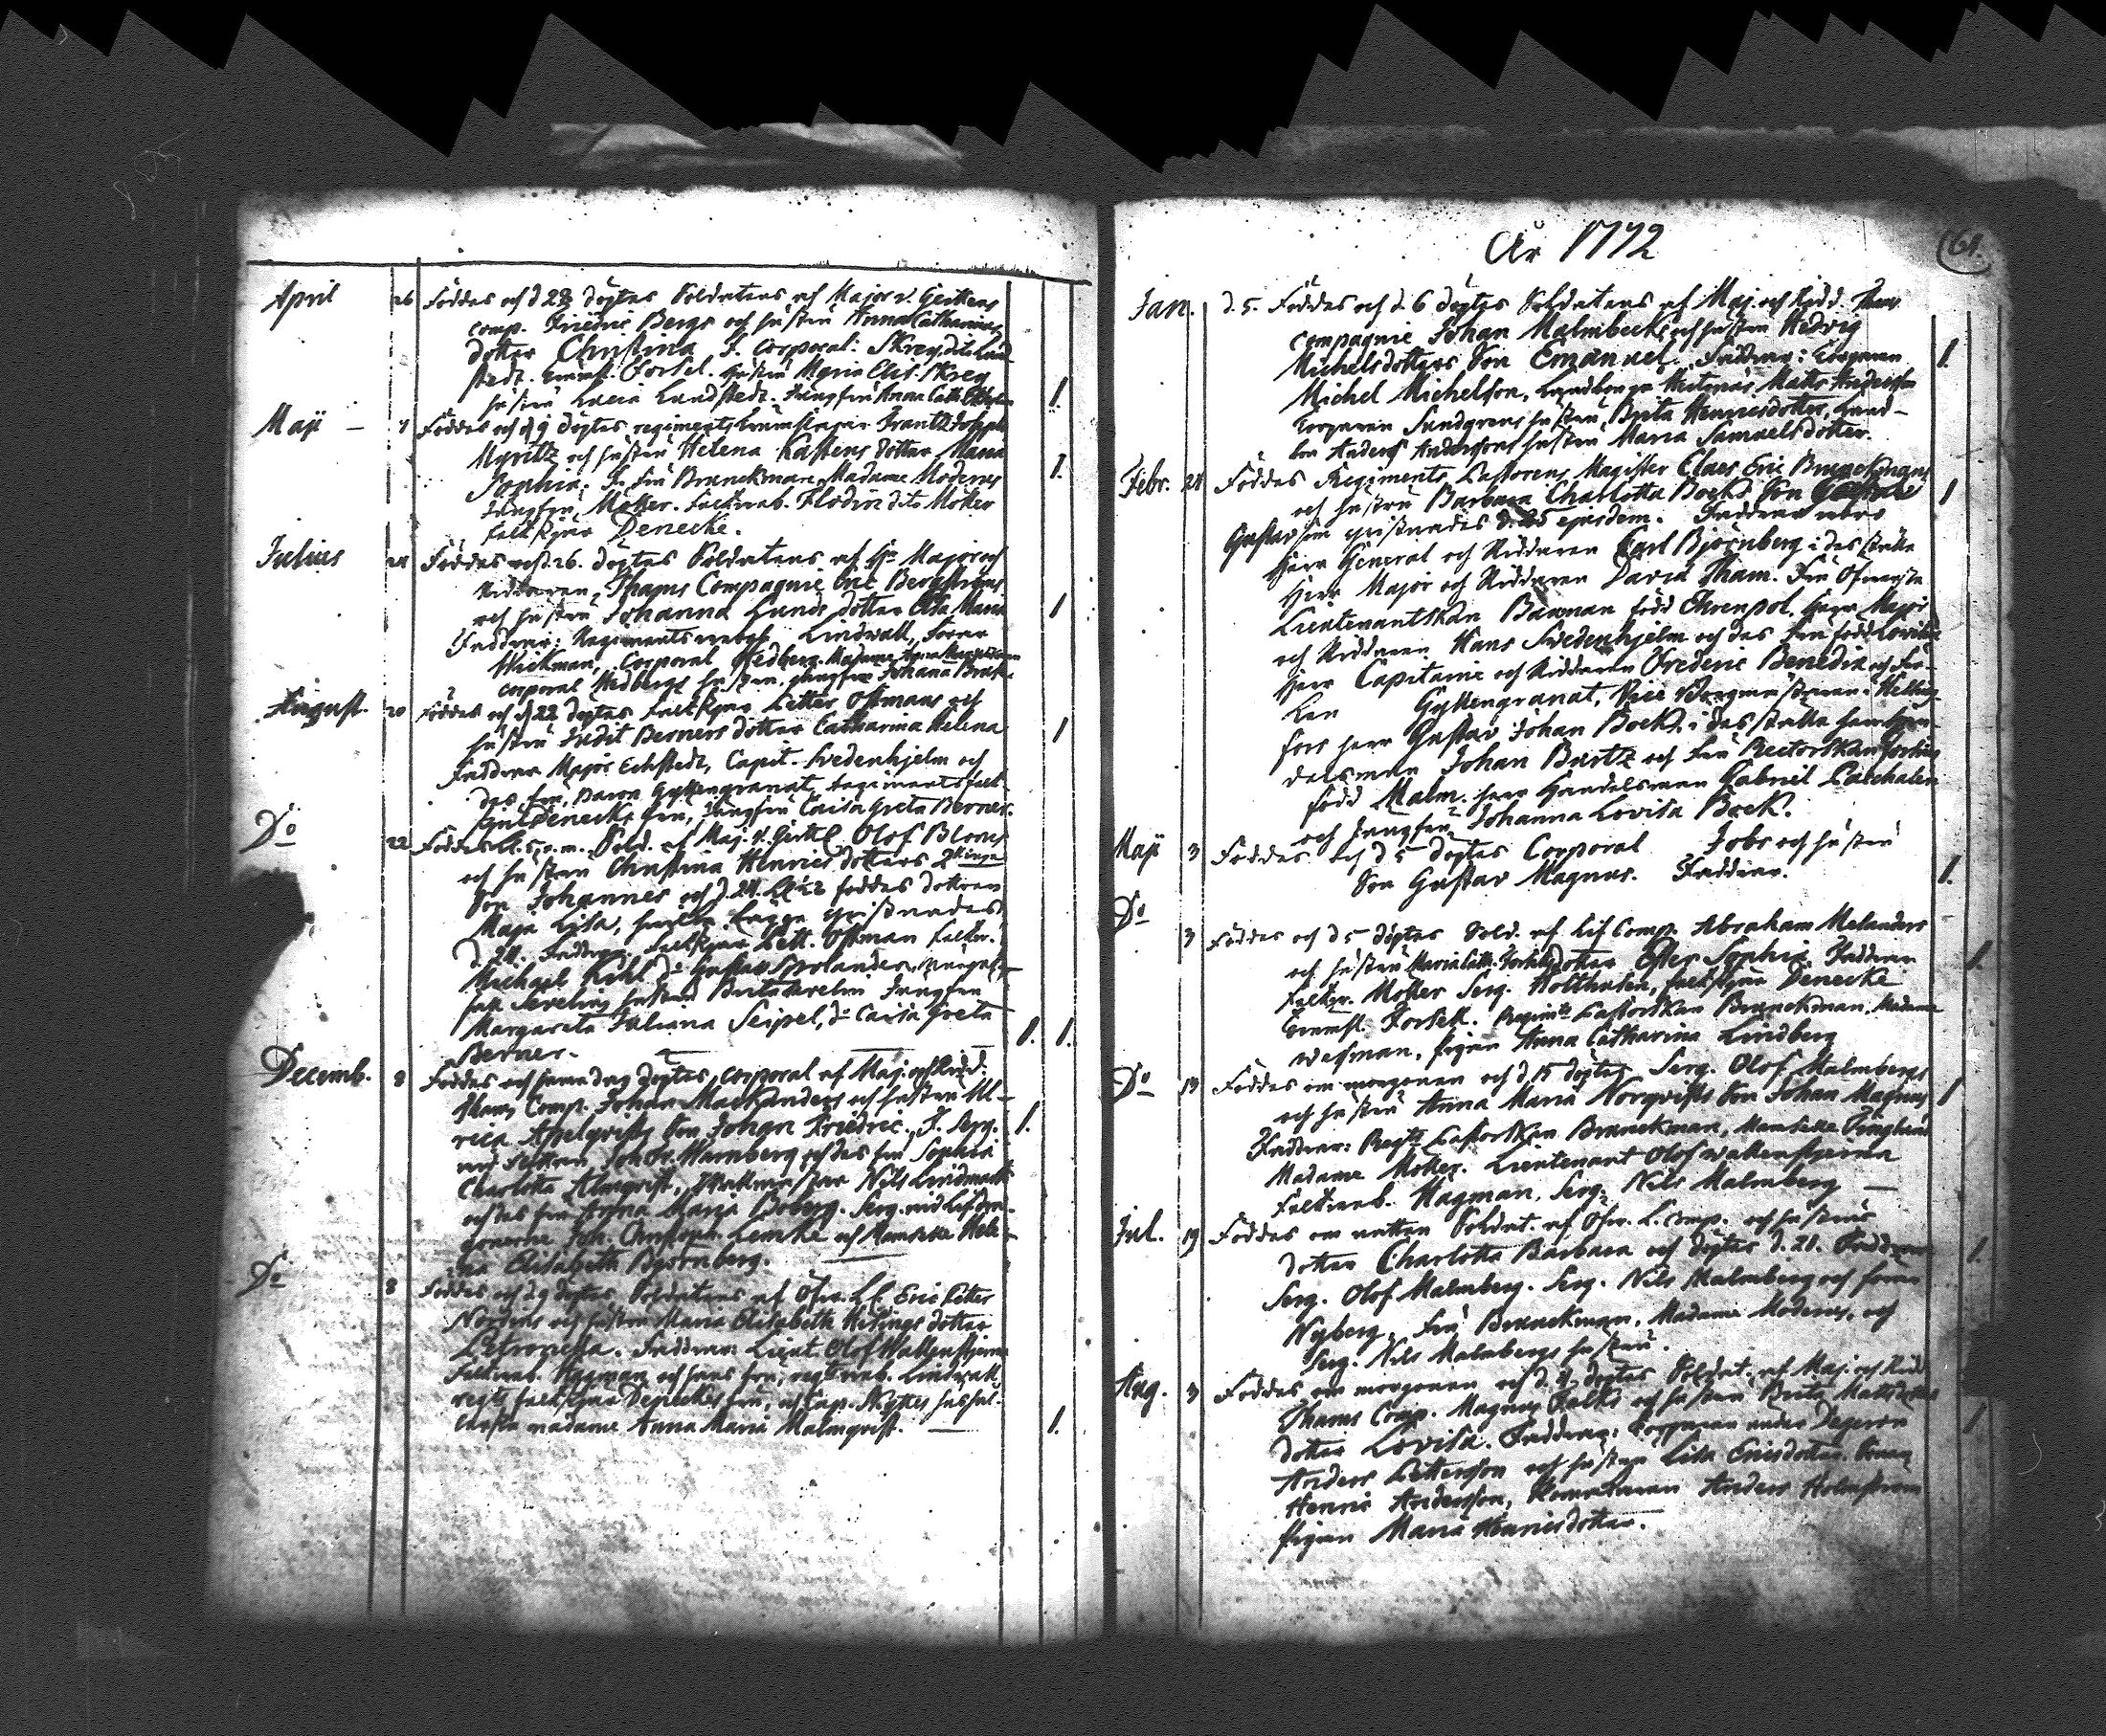 April 26 Föddes och d 28 döptes Soldatens af Major v. Gerttens
comp. Friedric Bergs och hustru Anna Catharinas
dotter Christina F. Corporal: Skrey, dito Lund
stedt. Forsel. hustru Maria Elis. Skrey
hustru Lucia Lundstedt. Jungfru Anna Cath. 1
Maji – 7 Föddes och d 9 döptes regiments Trumslagar Frantz Joseph
Myritz och hustru Helena Kastens dotter Maria
Sophia. F. Fru Branckman, Madame Moderus 1.
Jungfru Möller. Fältwäb. Flodin dito Möller
fältskjär Denecke.
Julius 24 Föddes och d. 26. döptes Soldatens af Hr Major och
Riddaren Thams Compagnie Eric Bergströms
och hustru Johanna Lunds dotter Lisa Maria 1
Faddrar: Regimentswäbel Lindwall, Forar
Wickman, Corporal Hedberg. Madame
Corporal Hedbergs hustru, Jungfru Johana
August. 20 Föddes och d 22 döptes fältskjär Petter Östmans och
hustru Judit Berners dotter Catharina Helena 1
Faddrar Major Eckstedt, Capit. Svedenhjelm och
des fru, Baron Gyllengranat, Regiments fält-
skjär Deneckes fru, Jungfru Caisa Greta Berner.
Do 22 Föddes kl. 5 e. m. Sold. af Maj. v. Gertte Olof Bloms
och hustru Christina Henricsdotters 2
Son Johannes och d. 24. föddes dottren
Maja Lisa, hwilka begge christnades
d. 24. Faddrar: Fältskjär Pett. Östman
Michael Kihl do Gustav Spolander,
Severling hustru Brita Jungfru
Margareta Juliana Seipel, do Caisa Greta
Berner. 1. 1.
Decemb. 8 Föddes och samma dag döptes Corporal af Maj. och Ridd.
Thams Comp. Johan Marchanders och hustru Ul-
rica Apelqvists Son Johan Friedric. F. Serg. 1.
Joh. Fr. Warnberg och des fru Sophia
Charlotta Almqvist, Nils Lindmark
och des fru Anna Maria Boberg. Serg. wid Lif dra-
gonerne Joh. Christoph. Lemke och Mamselle Hele-
na Elisabeth Bjornberg.
Do 8 Föddes och d. 9 döptes Soldatens af Öfw. Lt. Eric Petter
Nordins och hustru Maria Elisabeth Hilings dotter
Petronella. Faddrar: Lieut. Olof Wallenstjerna
Fältwäb. Hagman och hans fru, regt. wäb. Lindwall
regts fältskjär Deneckes fru, och Cap. Skyttes hushål-
lerska madame Anna Maria Malmqvist. 1.
År 1772 61.
Jan. d. 5. Föddes och d. 6 döptes Soldatens af Maj. och Ridd. Thams
compagnie Johan Malmbecks och hustru Hedvig
Michelsdotters Son Emanuel. Faddrar: Corporaren 1.
Michel Michelson, Matts Anderson
Sundgrens hustru, Brita Henricsdotter, Land-
bon Anders Andersons hustru Maria Samuelsdotter.
Febr. 21 Föddes Regiments Pastorens Magister Claes Eric Branckmans
och hustru Barbara Charlotta Bocks Son 1
Gustav som christnades d. 25 ejusdem. Faddrar woro
Herr General och Riddaren Carl Bjornberg i des ställe
Herr Major och Riddaren David Tham. Fru Öfwerste
Lieutenantskan Bauman född Ehrenpol. Herr Major
och Riddaren Hans Svedenhjelm och des Fru född
Herr Capitaine och Riddaren Frederic Benedix och Frö-
ken Gyllengranat, Vice Borgmästaren i Helsing-
fors herr Gustav Johan Bock, i des ställe
delsman Johan Burtz och Fru Rectorskan
född Malm. herr Handelsman Gabriel Paschalin
och Jungfru Johanna Lovisa Bock.
Maji 3 Föddes och d 5 döptes Corporal Jobs och hustru
Son Gustav Magnus. Faddrar. 1.
Do 3 Föddes och d 5 döptes Sold. af Lif Comp. Abraham Melanders
och hustru Maria Cath. dotter Ester Sophia. Faddrar 1.
Möller Serg. Holthusen, fältskjär Denecke
Forsell. Regimts Pastorskan Branckman, Madame
Wasman, pigan Anna Catharina Lindberg
Do 13 Föddes om morgonen och d. 15 döptes Serg. Olof Malmbergs
och hustru Anna Maria Norqvists Son Johan Magnus 1
Faddrar: Regts Pastorskan Branckman, Mamselle
Madame Möller. Lieutenant Olof Wallenstjerna
Fältwäb. Hagman, Serg. Nils Malmberg –
Jul. 19 Föddes om natten Soldat. af Öfw. L. comp. och hustrus
dotter Charlotta Barbara och döptes d. 21. Faddrar 1.
Serg. Olof Malmberg. Serg. Nils Malmberg och forar
Nyberg. Fru Branckman, Madame Moderus, och
Serg. Nils Malmbergs hustru.
Aug. 3 Föddes om morgonen och d. 4 döptes Soldat. af Maj. och Ridd
Thams Comp. Magnus Falks och hustru Brita Mattsdotters
dotter Lovisa. Faddrar: Corporaren 1
Anders Petterson och hustru Lisa Ericsdotter.
Henric Anderson, Anders Holmström
pigan Maria Henricsdotter.